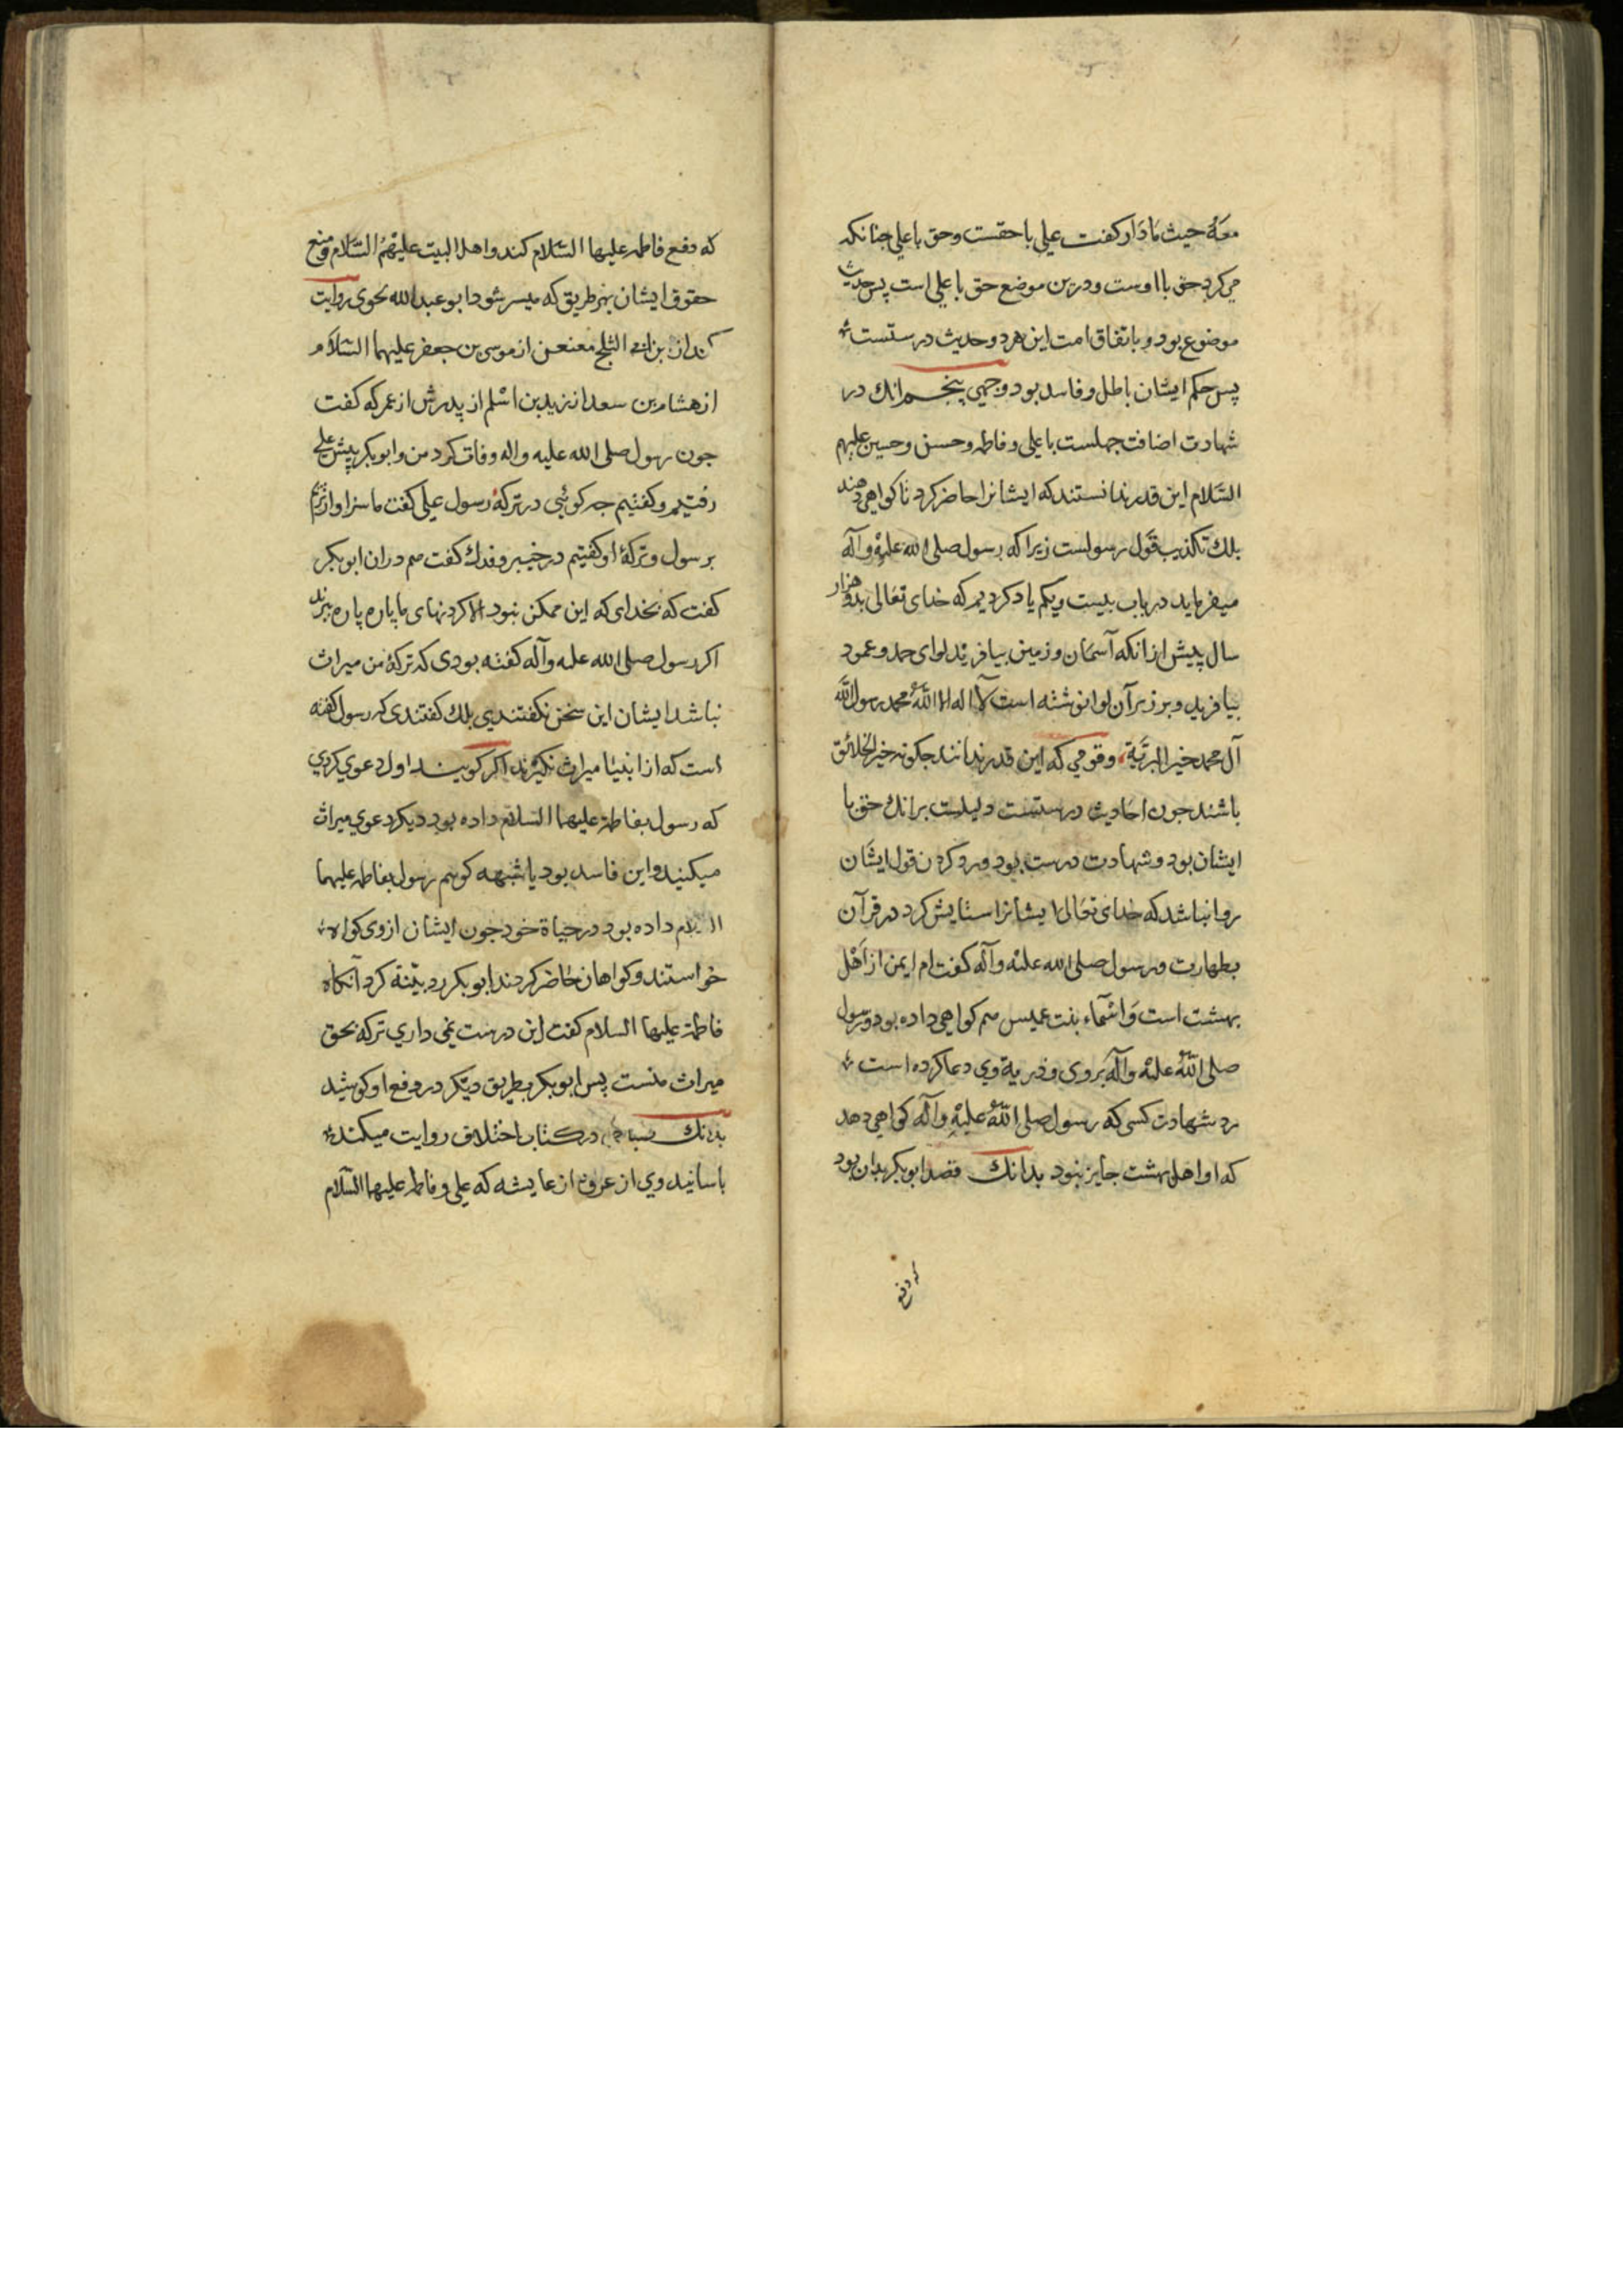 معه حیث مادار کفت علی باحقست وحق باعلی جنانکه
می کرد حق بااوست ودرین موضع حق باعلی است پس حدیث
موضوع بود وباتفاق امت این هردو حدیث درستست
پس حکم ایشان باطل وفاسد بود وجهی پنجم انك در
شهادت اضافت جهلست باعلی وفاطمه وحسن وحسین علیهم
السّلام این قدر ندانستند که ایشانرا حاضر کرد تا کواهی دهند
بلك تکذیب قول رسولست زیرا که رسول صلی الله علیه وآله
میفرماید در باب بیست ویکم یاد کردیم که خدای تعالی بدو هزار
سال پیش ازانکه آسمان وزمین بیافرید لوای حمد وعمود
بیافرید وبرزبر آن لوا نوشته است لا اله الا الله محمد رسول الله
آل محمد خیر البریّة وقومی که این قدر ندانند جکونه خیر الخلائق
باشند جون احادیث درستست دلیلست برانك حق با
ایشان بود وشهادت درست بود ورد کردن قول ایشان
روا نباشد که خدای تعالی ایشانرا ستایش کرد در قرآن
بطهارت ورسول صلی الله علیه وآله کفت ام ایمن از اهل
بهشت است واسماء بنت عمیس هم کواهی داده بود ورسول
صلی الله علیه وآله بروی وذریة وی دعا کرده است
رد شهادت کسی که رسول صلی الله علیه وآله کواهی دهد
که او اهل بهشت جایز نبود بدانك قصد ابوبکر بدان بود
که دفع
که دفع فاطمه علیها السّلام کند واهل البیت علیهم السّلام ومنع
حقوق ایشان بهر طریق که میسر شود ابو عبد الله نحوی روایت
کند از ابن ابی الثلج معنعن از موسی بن جعفر علیهما السّلام
از هشام بن سعد از زید بن اسلم از پدرش از عمر که کفت
جون رسول صلی الله علیه واله وفات کرد من وابوبکر پیش علی
رفتیم وکفتیم جه کوئی در ترکهٔ رسول علی کفت ما سزاوارتریم
برسول وترکهٔ او کفتیم در خیبر وفدك کفت هم دران ابوبکر
کفت که بخدای که این ممکن نبود الا کردنهای ما پاره پاره ببرند
اکر رسول صلی الله علیه وآله کفته بودی که ترکهٔ من میراث
نباشد ایشان این سخن نکفتندی بلك کفتندی که رسول کفته
است که از انبیا میراث نکیرند اکر کویند اول دعوی کردی
که رسول بفاطمة علیهما السّلام داده بود دیکر دعوی میراث
میکنید واین فاسد بود یا شبهه کویم رسول بفاطمه علیهما
السلام داده بود در حیاة خود جون ایشان ازوی کواه
خواستند وکواهان حاضر کردند ابوبکر رد بیّنة کرد آنکاه
فاطمة علیها السلام کفت این درست نمی داری ترکه بحق
میراث منست پس ابوبکر بطریق دیکر در دفع او کوشید
بدانك در کتاب اختلاف روایت میکند
باسانید وی از عروه از عایشه که علی وفاطمه علیهما السّلام